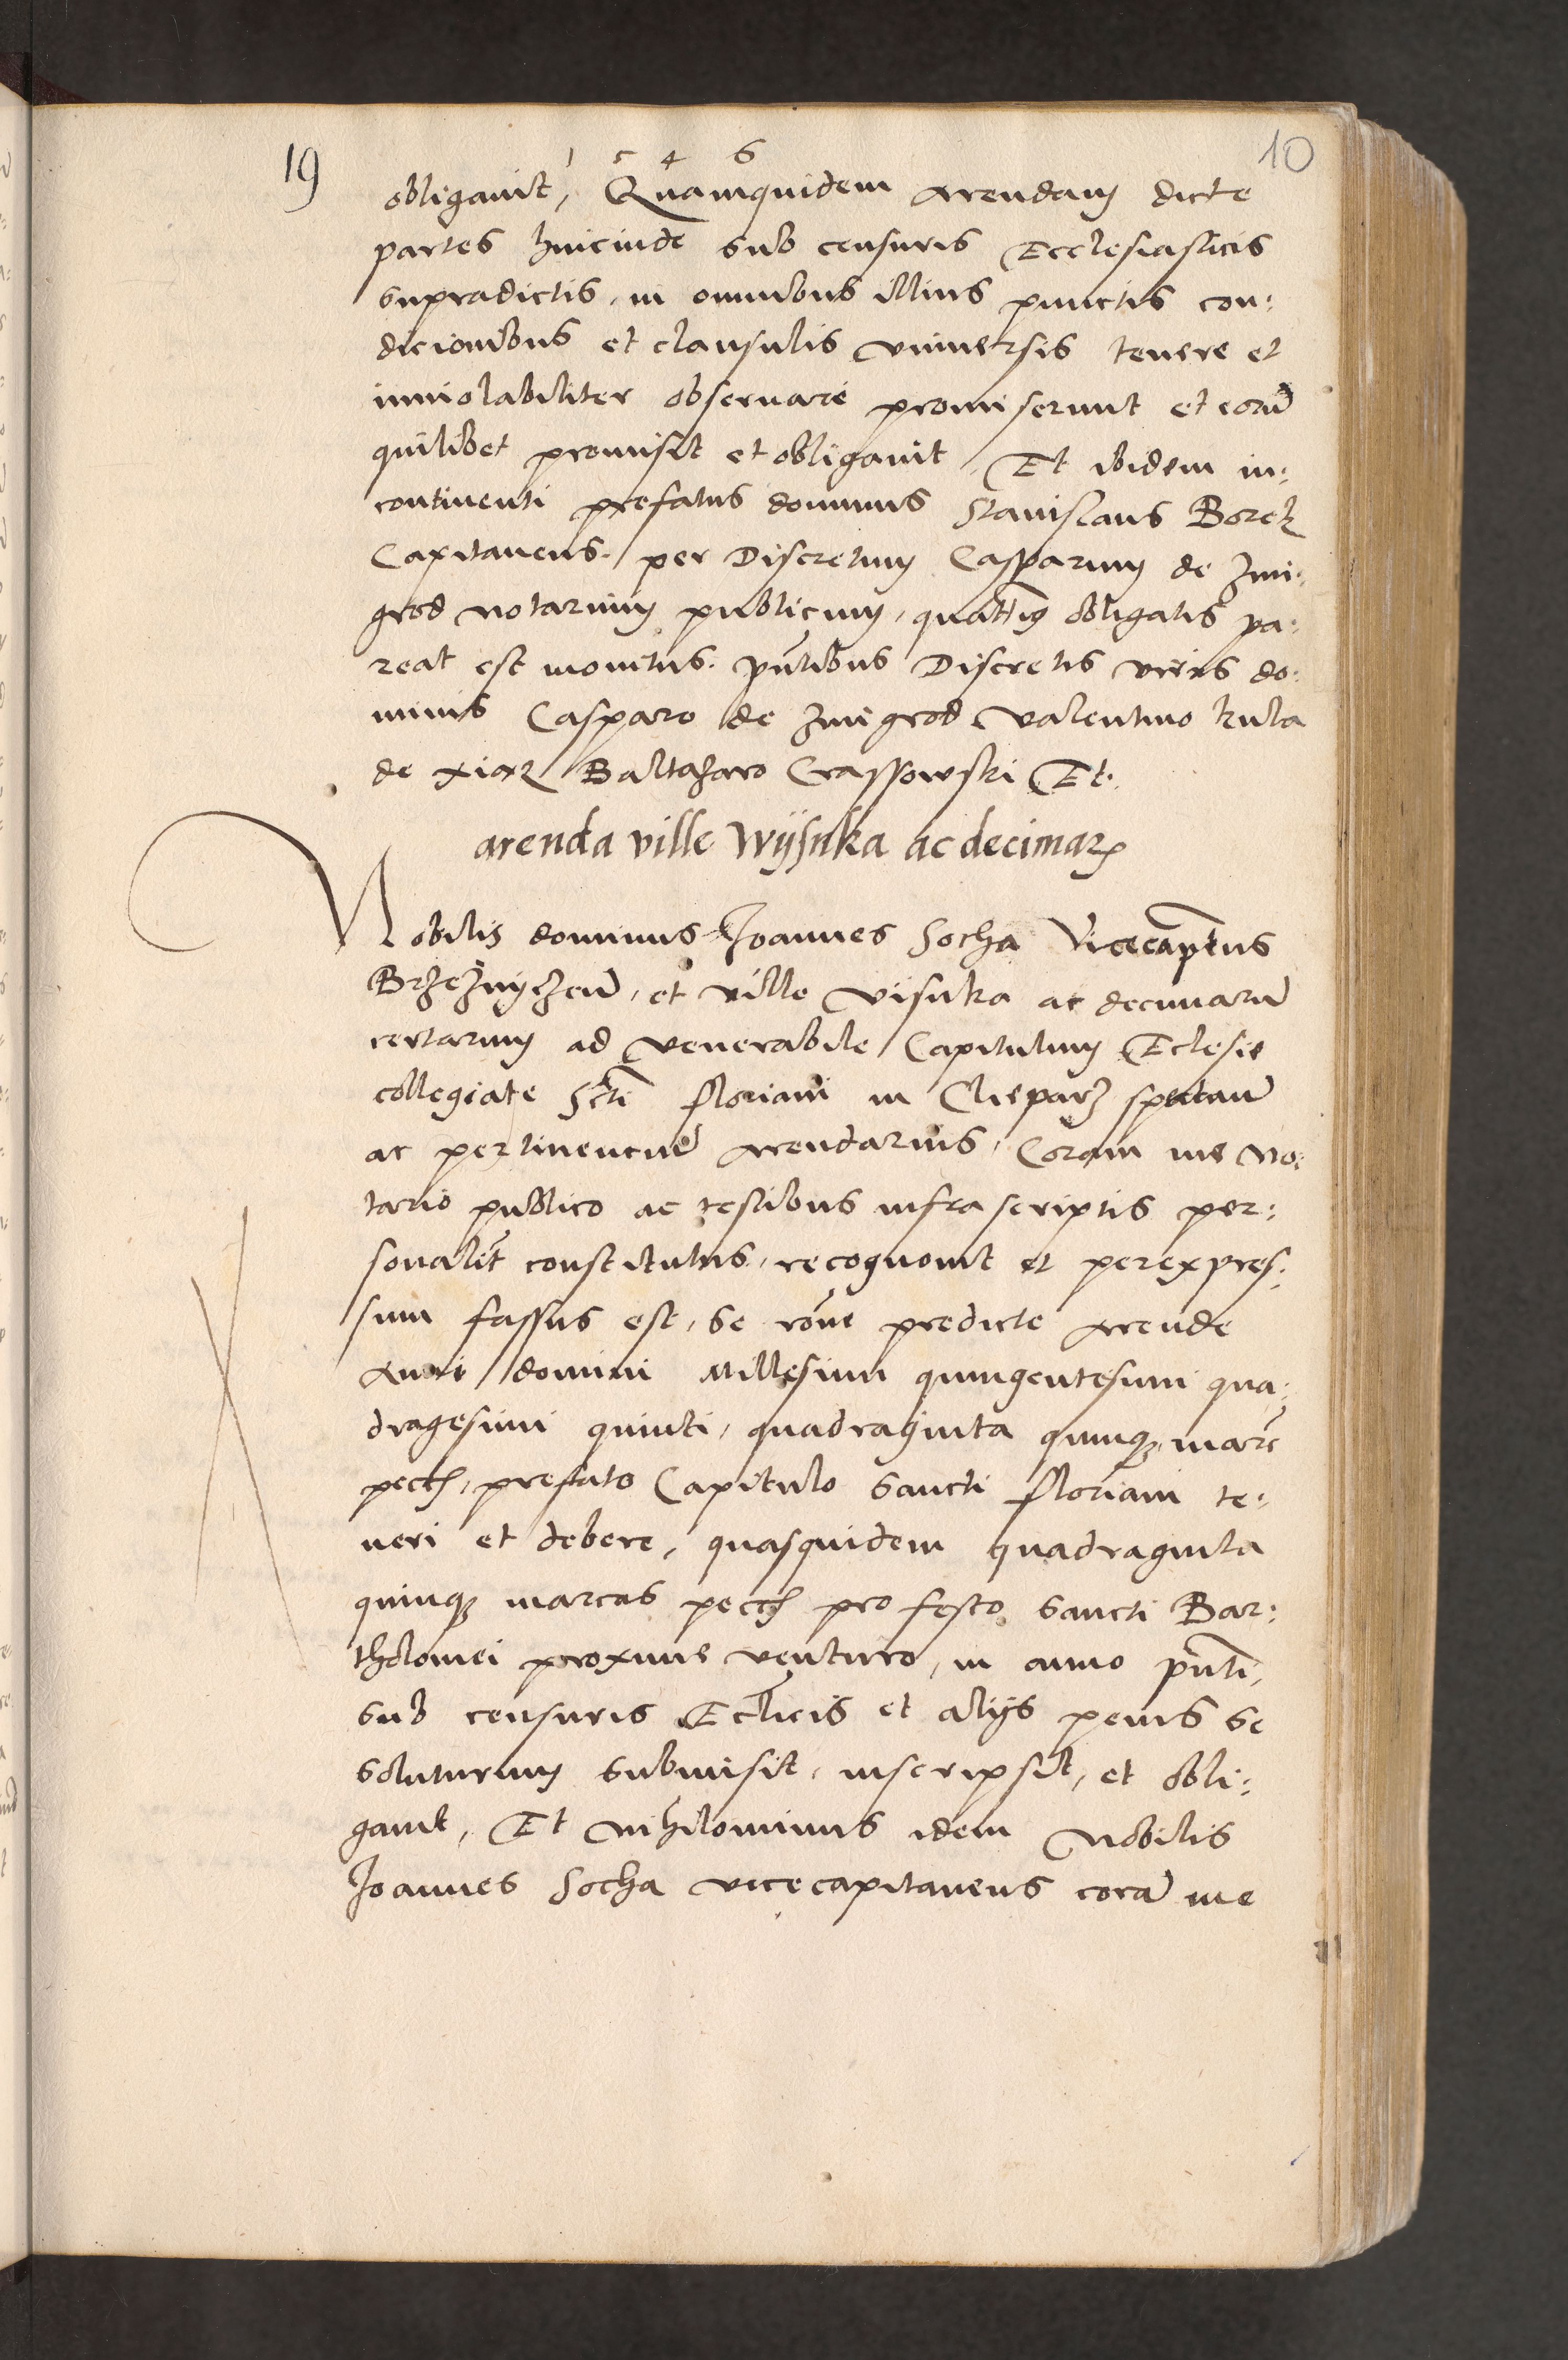 19
1 5 4 6
10
obligauit, Quamquidem arendam dicte
partes hincinde sub censuris Ecclesiasticis
supradictis, in omnibus illius punctis con:
dicionibus et clausulis vniuersis tenere et
inuiolabiliter obseruare promiserunt et eorū
quilibet promisit et obligauit, Et ibidem in:
continenti prefatus dominus Stanislaus Borek
Capitaneus. per Discretum Casparum de Zmi:
grod notarium publicum, obligatis pa:
reat est monitus. pñtibus Discretis viris do:
minis Casparo de Zmigrod Valentino kula
de xiąz Baltazaro Crassowski Et.
arenda ville Wijsnka ac decimarꝝ
Nobilis dominus Joannes Socha Vicecaptēus
Brzeznyczeñ, et ville Visnka ac decimarū
certarum ad venerabile Capitulum Eclesie
collegiate Scti floriani in Clieparz spectan̄
ac pertinenciū arendarius, Coram me No:
tario publico ac testibus infra scriptis per:
sonalit̄ constitutus, recognouit et perexpres:
sum fassus est, se rōne predicte arende
Anni domini Millesimi quingentesimi qua:
dragesimi quinti, quadraginta quinqꝫ marc̄
pecch, prefato Capitulo Sancti floriani te:
neri et debere, quasquidem quadraginta
quinqꝫ marcas pecch pro festo Sancti Bar:
tholomei proxime venturo, in anno pn̄ti,
sub censuris Ecl̄icis et alijs penis se
soluturum submisit, inscripsit, et obli:
gauit, Et nihilominus idem Nobilis
Joannes Socha vicecapitaneus corā me